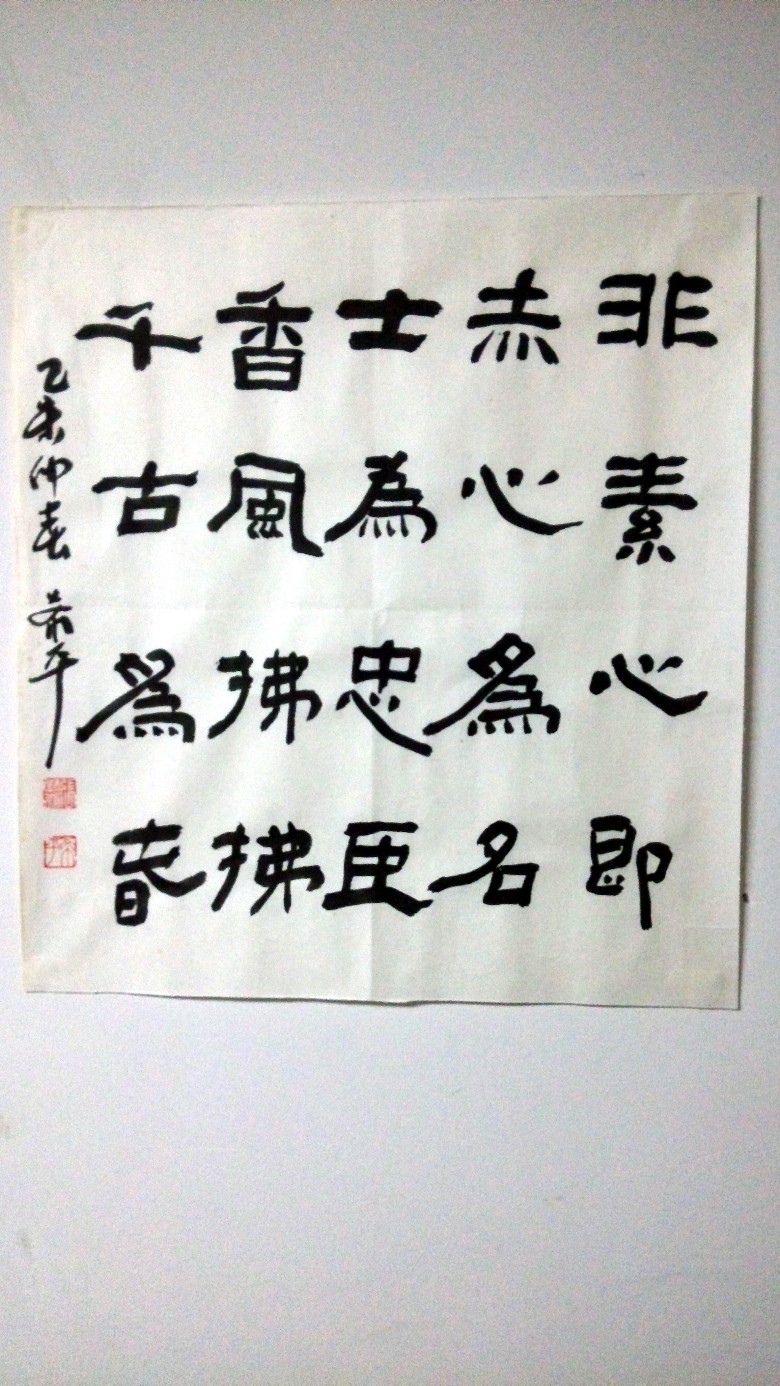 非素心即
赤心為名
士為忠臣
香風拂拂
千古為春
乙未仲春